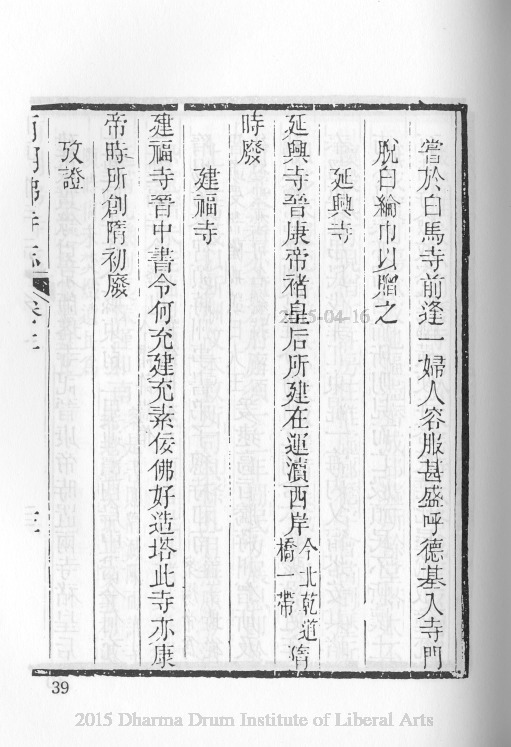 嘗於白馬寺前逢一婦人容服甚盛呼德基入寺門
脫白綸巾以贈之
延興寺
延興寺晉康帝褚皇后所建在運瀆西岸今北乾道橋一帶隋
時廢
建福寺
建福寺晉中書令何充建充素佞佛好造塔此寺亦康
帝時所創隋初廢
攷證
39
2015-04-16
2015 Dharma Drum Institute of Liberal Arts